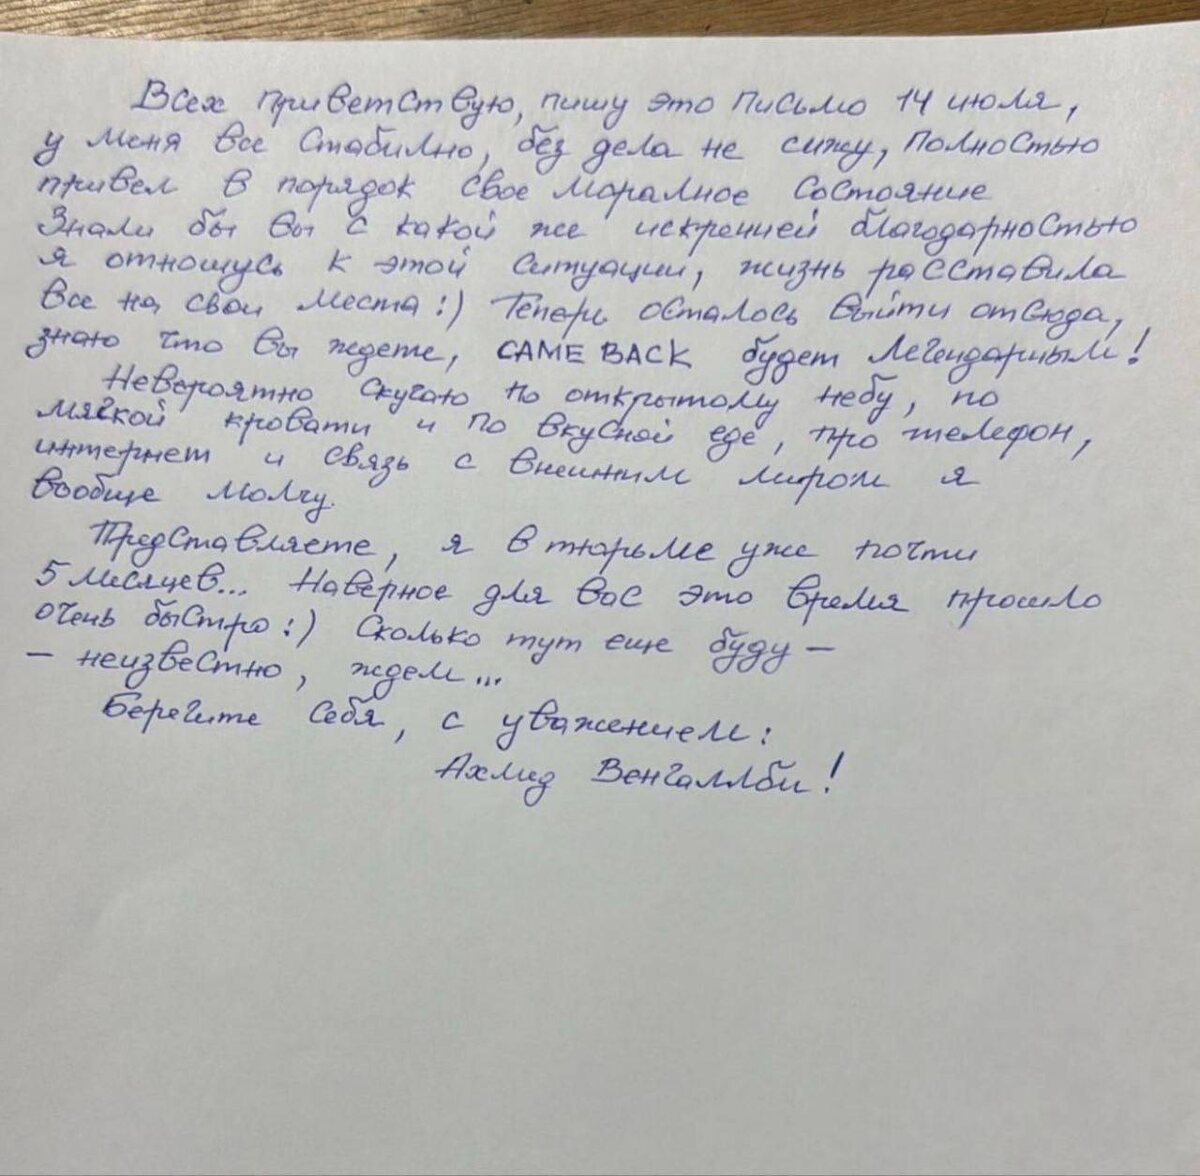 Всех приветствую, пишу это письмо 14 июля,
у меня все стабилно, без дела не сижу, полностью
привел в порядок свое моралное состояние
Знали бы вы с какой же искренней благодарностью
я отношусь к этой ситуации, жизнь расставила
все на свои места:) Теперь осталось выйти отсюда,
знаю что вы ждете, CAME BACK будет легендарным!
Невероятно скучаю по открытому небу, по
мягкой кровати и по вкусной еде, про телефон,
интернет и связь с внешним миром я
вообще молчу.
Представляете, я в тюрьме уже почти
5 месяцев... Наверное для вас это время прошло
очень быстро:) Сколько тут еще буду –
– неизвестно, ждем...
Берегите себя, с уважением:
Ахмид Венгаллби!